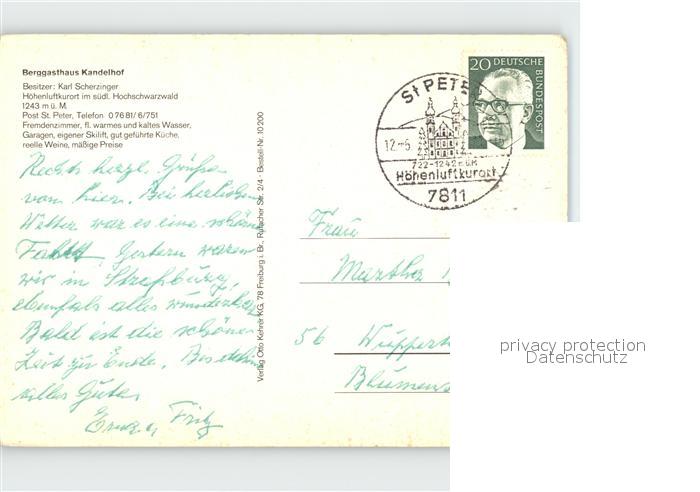 Berggasthaus Kandelhof
Besitzer: Karl Scherzinger
Höhenluftkurort im südl. Hochschwarzwald
1243 m ü. M.
Post St. Peter, Telefon 07681/6/751
Fremdenzimmer, fl. warmes und kaltes Wasser,
Garagen, eigener Skilift, gut geführte Küche,
reelle Weine, mäßige Preise
Recht herzl. Grüße
von hier. Bei herlichem
Wetter war es eine schöne
Fahrt. Gestern waren
wir in Straßburg,
ebenfals alles wunderbar
Bald ist die schöne
Zeit zu Ende. Bis dahin
alles Gute
Fritz
Verlag Otto Kehrer KG, 78 Freiburg i. Br., Rufacher Str. 2/4 · Bestell-Nr. 10 200
St PETER
12.-6.
722-1242 m ü.M
Höhenluftkurort
7811
20 DEUTSCHE
BUNDESPOST
Frau
Martha
56 Wuppert
Blumens
privacy protection
Datenschutz